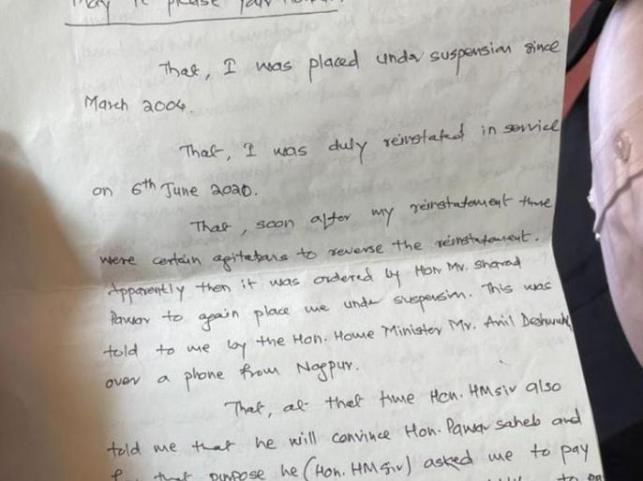 May it please your
That, I was placed under suspension since
March 2004.
That, I was duly reinstated in service
on 6th June 2020.
That, soon after my reinstatement there
were certain agitations to reverse the reinstatement.
Apparently then it was ordered by Hon Mr. Sharad
Pawar to again place me under suspension. This was
told to me by the Hon. Home Minister Mr. Anil Deshmukh
over a phone from Nagpur.
That, at that time Hon. HM sir also
told me that he will convince Hon. Pawar saheb and
that purpose he (Hon. HM Sir) asked me to pay